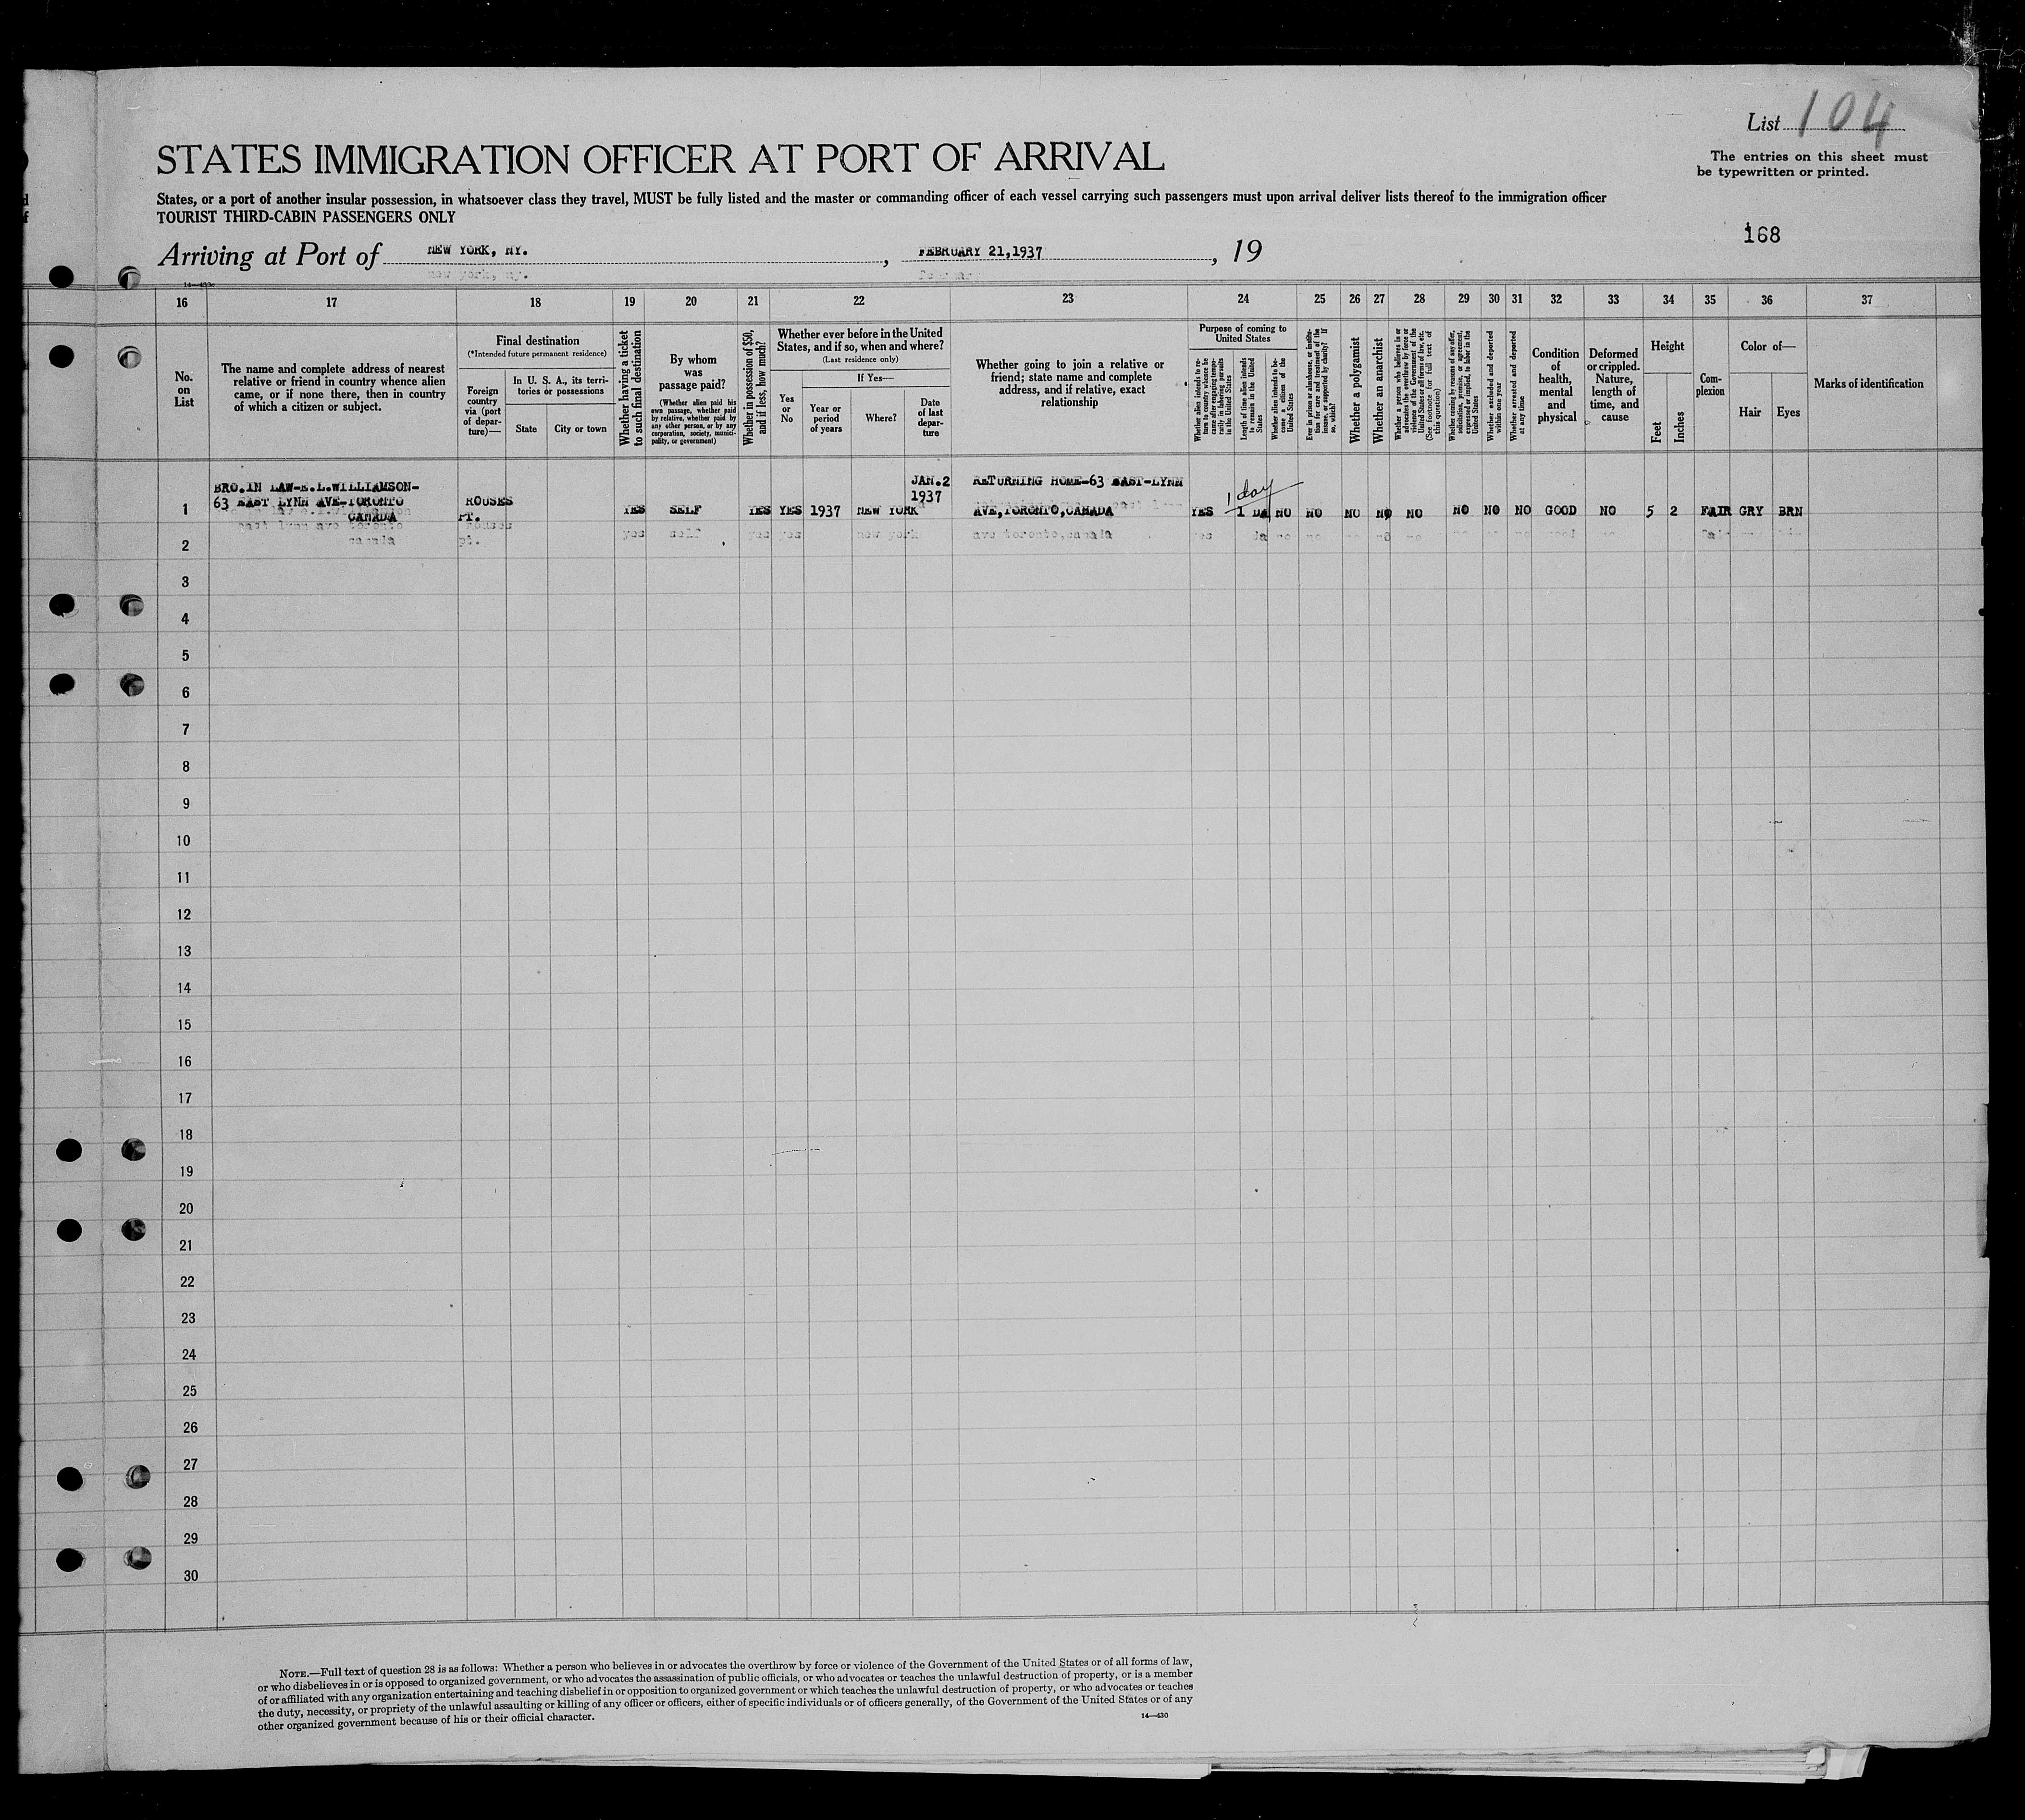 List 104
STATES IMMIGRATION OFFICER AT PORT OF ARRIVAL
The entries on this sheet must
be typewritten or printed.
States, or a port of another insular possession, in whatsoever class they travel, MUST be fully listed and the master or commanding officer of each vessel carrying such passengers must upon arrival deliver lists thereof to the immigration officer
TOURIST THIRD-CABIN PASSENGERS ONLY
168
Arriving at Port of NEW YORK, NY. , FEBRUARY 21,1937 , 19
new york, ny.
16 17 18 19 20 21 22 23 24 25 26 27 28 29 30 31 32 33 34 35 36 37
No.
on
List
The name and complete address of nearest
relative or friend in country whence alien
came, or if none there, then in country
of which a citizen or subject.
Final destination
(*Intended future permanent residence)
Foreign
country
via (port
of depar-
ture)—
In U. S. A., its terri-
tories or possessions
State
City or town
Whether having a ticket
to such final destination
By whom
was
passage paid?
(Whether alien paid his
own passage, whether paid
by relative, whether paid by
any other person, or by any
corporation, society, munici-
pality, or government)
Whether in possession of $50,
and if less, how much?
Whether ever before in the United
States, and if so, when and where?
(Last residence only)
Yes
or
No
If Yes—
Year or
period
of years
Where?
Date
of last
depar-
ture
Whether going to join a relative or
friend; state name and complete
address, and if relative, exact
relationship
Purpose of coming to
United States
Whether alien intends to re-
turn to country whence he
came after engaging tempo-
rarily in laboring pursuits
in the United States
Length of time alien intends
to remain in the United
States
Whether alien intends to be-
come a citizen of the
United States
Ever in prison or almshouse, or institu-
tion for care and treatment of the
insane, or supported by charity? If
so, which?
Whether a polygamist
Whether an anarchist
Whether a person who believes in or
advocates the overthrow by force or
violence of the Government of the
United States or all forms of law, etc.
(See footnote for full text of
this question)
Whether coming by reasons of any offer,
solicitation, promise, or agreement,
expressed or implied, to labor in the
United States
Whether excluded and deported
within one year
Whether arrested and deported
at any time
Condition
of
health,
mental
and
physical
Deformed
or crippled.
Nature,
length of
time, and
cause
Height
Feet
Inches
Com-
plexion
Color of—
Hair
Eyes
Marks of identification
BRO.IN LAW-E.L.WILLIAMSON-
63 EAST LYNN AVE-TORONTO
CANADA
ROUSES
PT.
JAN.2
1937
RETURNING HOME-63 EAST-LYNN
1 day
1 YES SELF YES YES 1937 NEW YORK AVE,TORONTO,CANADA YES 1 DA NO NO NO NO NO NO NO NO GOOD NO 5 2 FAIR GRY BRN
east lynn ave toronto
canada
rouses
pt.
yes self yes yes new york ave toronto,canada yes da no no
2
3
4
5
6
7
8
9
10
11
12
13
14
15
16
17
18
19
20
21
22
23
24
25
26
27
28
29
30
NOTE.—Full text of question 28 is as follows: Whether a person who believes in or advocates the overthrow by force or violence of the Government of the United States or of all forms of law,
or who disbelieves in or is opposed to organized government, or who advocates the assassination of public officials, or who advocates or teaches the unlawful destruction of property, or is a member
of or affiliated with any organization entertaining and teaching disbelief in or opposition to organized government or which teaches the unlawful destruction of property, or who advocates or teaches
the duty, necessity, or propriety of the unlawful assaulting or killing of any officer or officers, either of specific individuals or of officers generally, of the Government of the United States or of any
other organized government because of his or their official character.
14—430